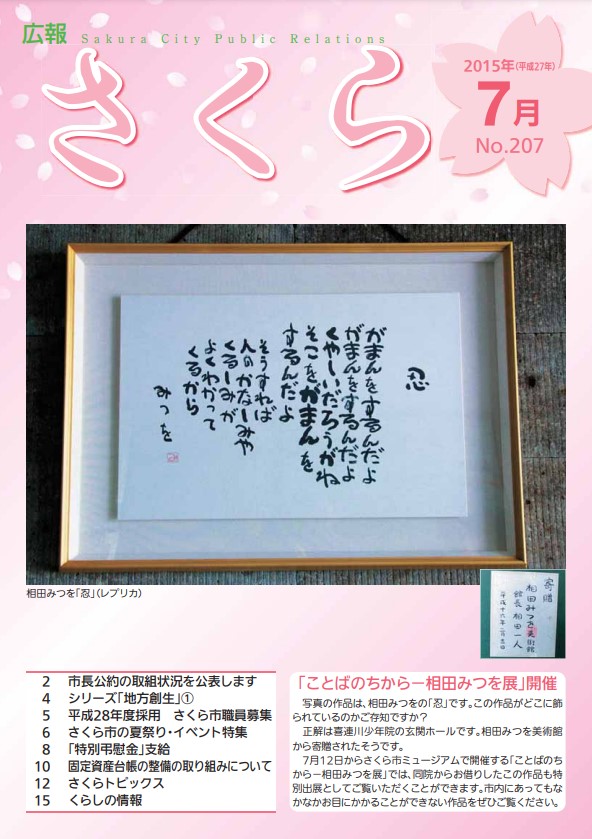 広報 Sakura City Public Relations
さくら
2015年(平成27年)
7月
No.207
忍
がまんをするんだよ
がまんをするんだよ
くやしいだろうがね
そこをがまんを
するんだよ
そうすれば
人のかなしみや
くるしみが
よくわかって
くるから
みつを
相田みつを「忍」(レプリカ)
寄贈
相田みつを美術館
館長 相田一人
2 市長公約の取組状況を公表します
4 シリーズ「地方創生」①
5 平成28年度採用 さくら市職員募集
6 さくら市の夏祭り・イベント特集
8 「特別弔慰金」支給
10 固定資産台帳の整備の取り組みについて
12 さくらトピックス
15 くらしの情報
「ことばのちから－相田みつを展」開催
写真の作品は、相田みつをの「忍」です。この作品がどこに飾
られているのかご存知ですか？
正解は喜連川少年院の玄関ホールです。相田みつを美術館
から寄贈されたそうです。
7月12日からさくら市ミュージアムで開催する「ことばのち
から－相田みつを展」では、同院からお借りしたこの作品も特
別出展としてご覧いただくことができます。市内にあってもな
かなかお目にかかることができない作品をぜひご覧ください。